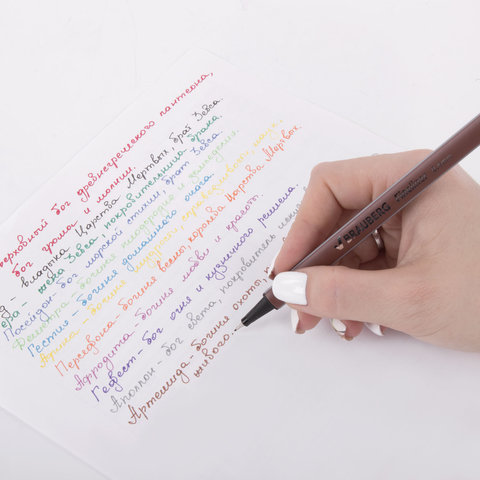 верховный бог древнегреческого пантеона,
бог грома и молнии.
владыка Царства Мёртвых, брат Зевса
жена Зевса, покровительница брака.
Посейдон - бог морской стихии, брат Зевса.
Деметра - богиня плодородия и земледелия.
Гестия - богиня домашнего очага
Афина - богиня мудрости, справедливости, наук,
Персефона - богиня весны, королева Царства Мёртвых.
Афродита - богиня любви и красоты.
Гефест - бог огня и кузнечного ремесла
Аполлон - бог света, покровитель
Артемида - богиня охоты,
живого
BRAUBERG